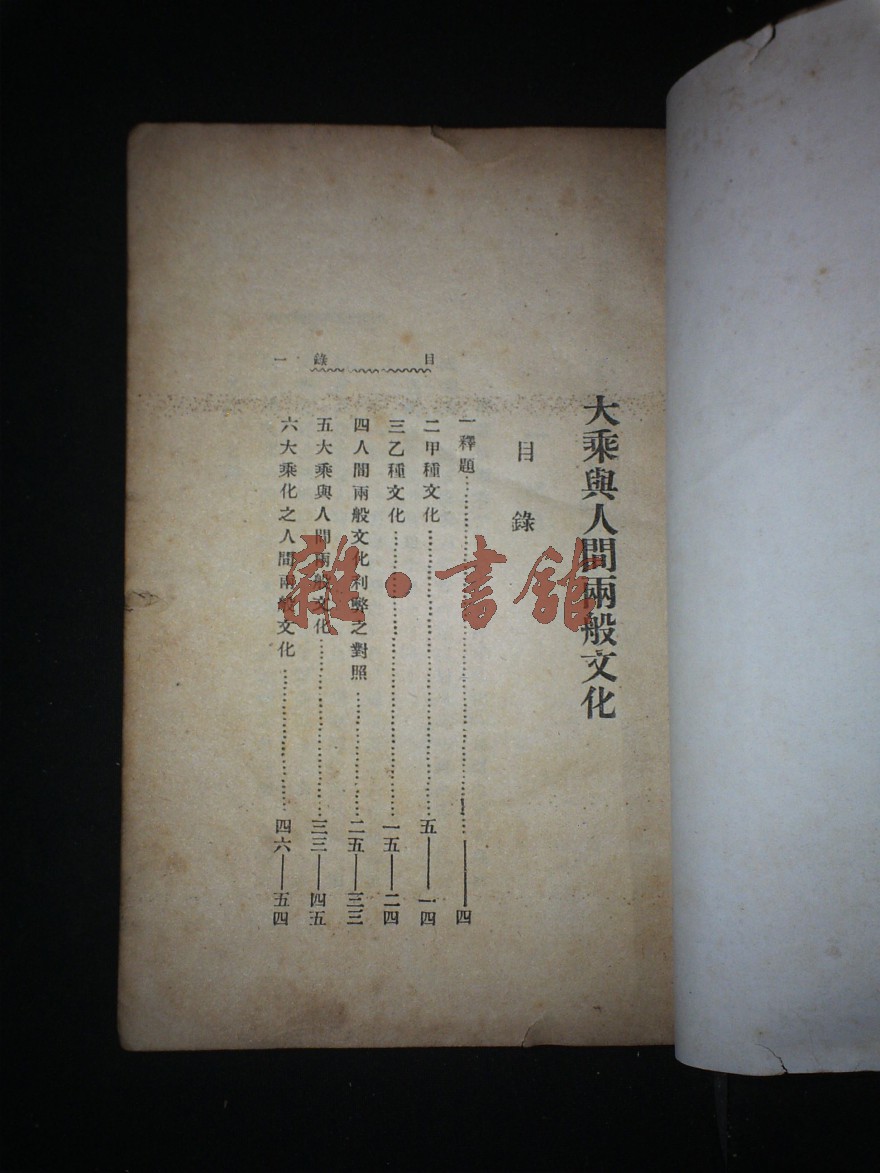 大乘與人間兩般文化
目錄
一釋題……一——四
二甲種文化……五——一四
三乙種文化……一五——二四
四人間兩般文化利弊之對照……二五——三三
五大乘與人間兩般文化……三三——四五
六大乘化之人間兩般文化……四六——五四
目錄 一
雜·書館